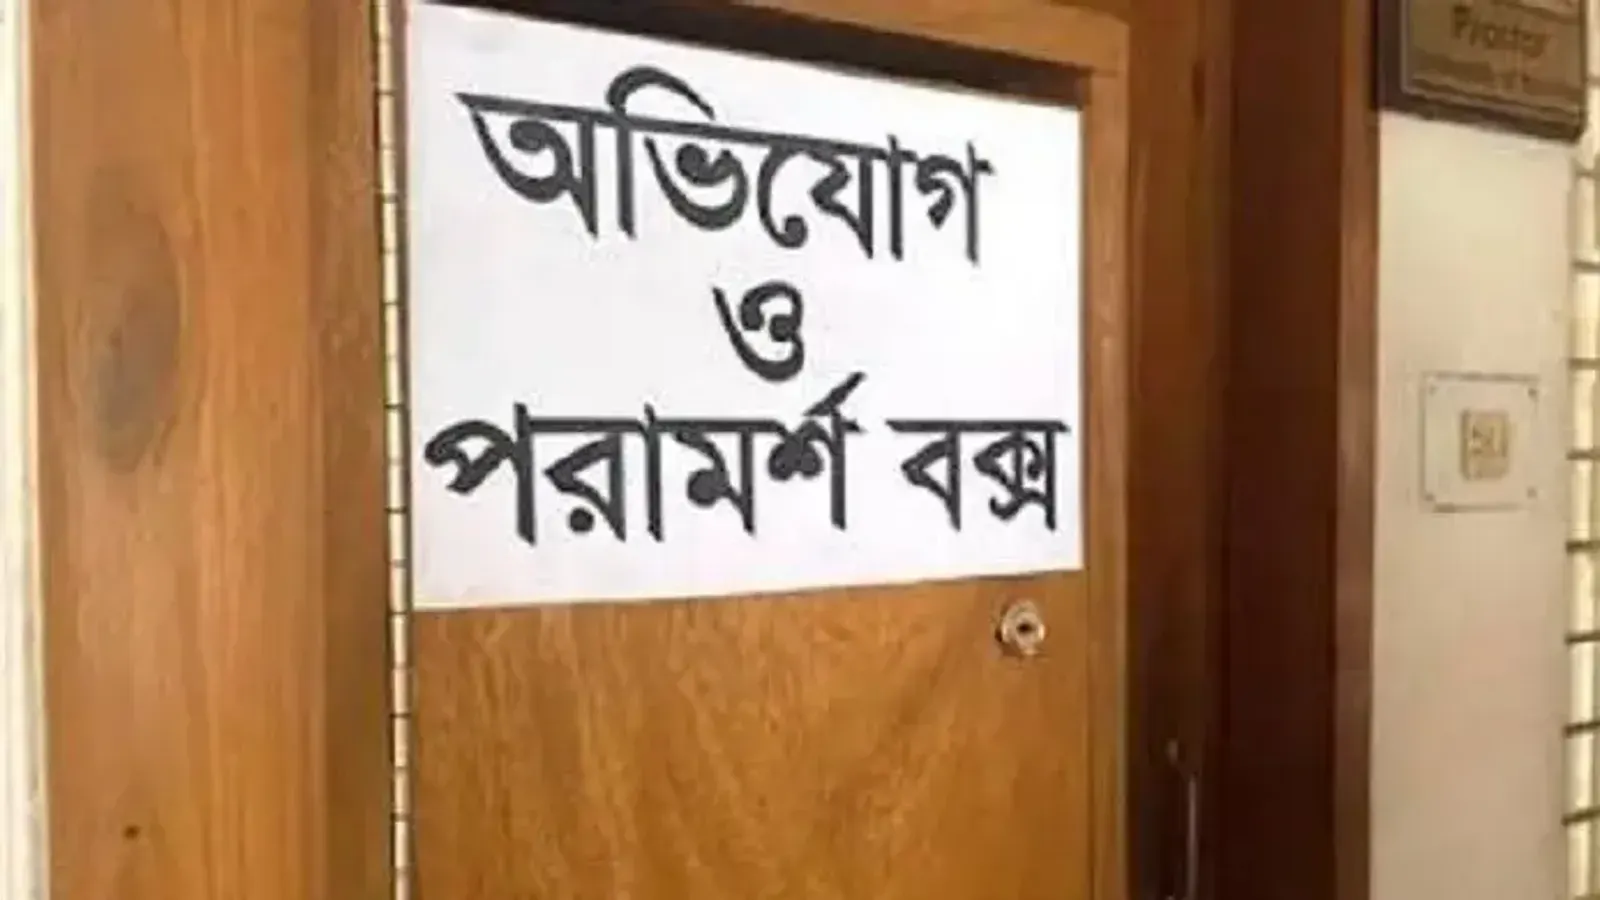 অভিযোগ
ও
পরামর্শ বক্স
Proctor